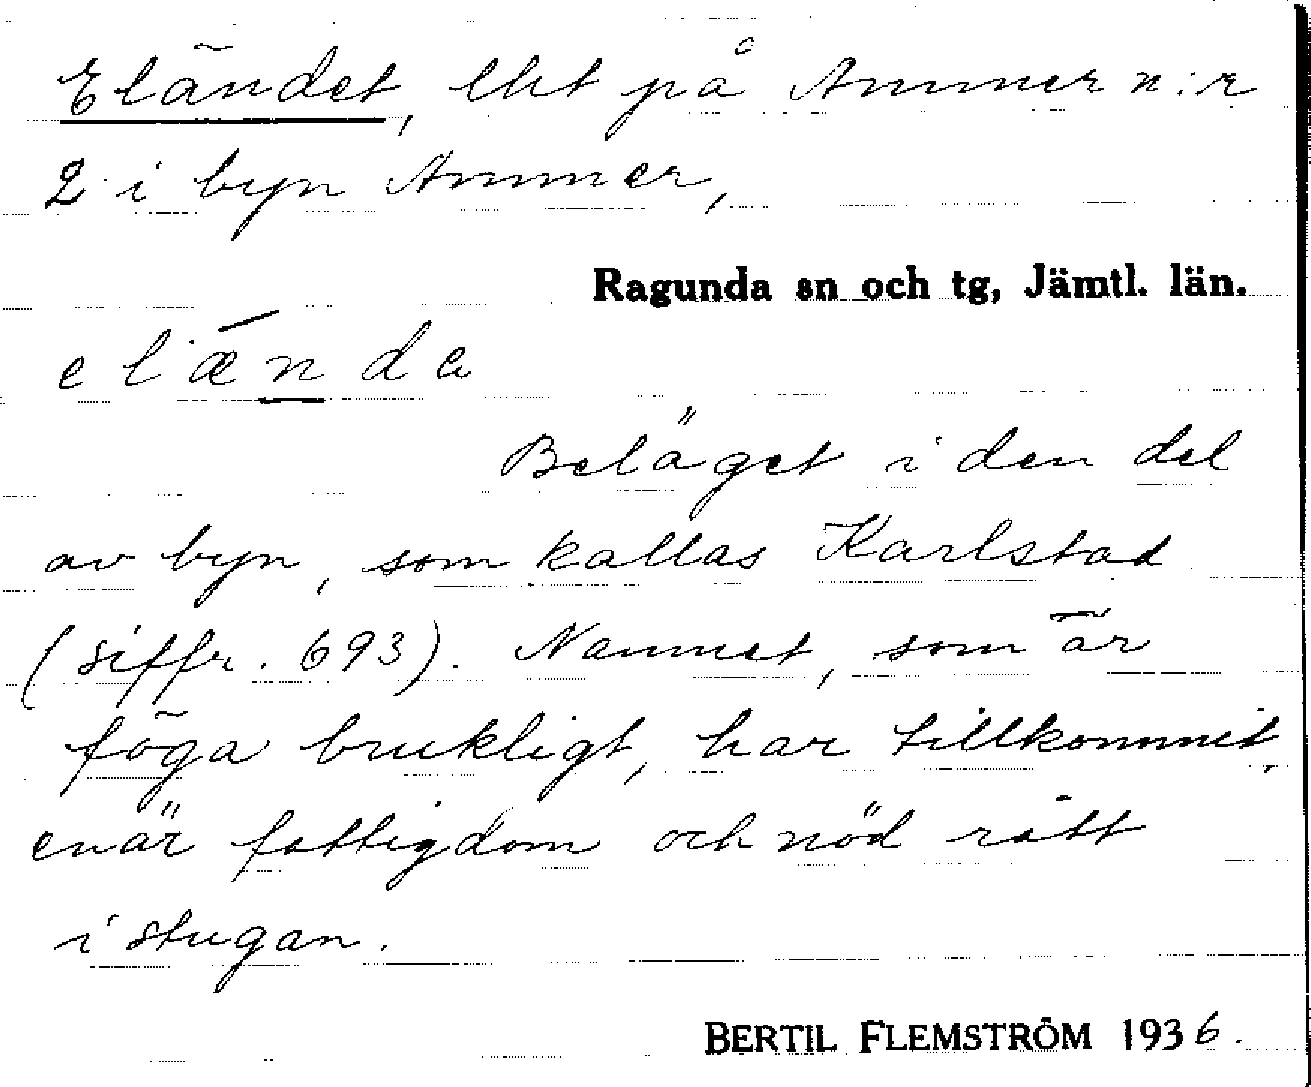 Eländet, lht på Ammer n:r
2 i byn Ammer,
Ragunda sn och tg, Jämtl. län.
elǽnda
Beläget i den del
av byn, som kallas Karlstad
(siffr. 693). Namnet, som är
föga brukligt, har tillkommit,
enär fattigdom och nöd rått
i stugan.
BERTIL FLEMSTRÖM 1936.